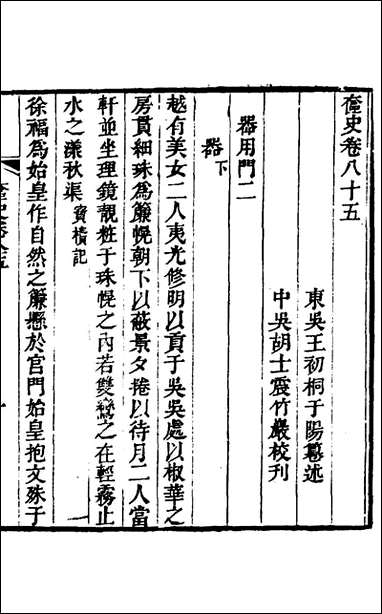 奩史卷八十五
東吳王初桐于陽纂述
中吳胡士震竹巖校刊
器用門二
器下
越有美女二人夷光修明以貢于吳吳處以椒華之
房貫細珠爲簾幌朝下以蔽景夕捲以待月二人當
軒並坐理鏡靚粧于珠幌之內若雙鸞之在輕霧止
水之漾秋渠寶櫝記
徐福爲始皇作自然之簾懸於宮門始皇抱文殊于